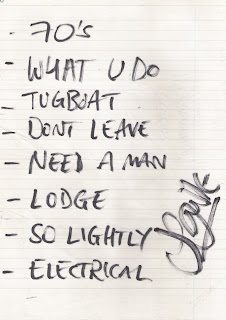 - 70's
- WHAT U DO
- TUGBOAT
- DONT LEAVE
- NEED A MAN
- LODGE
- SO LIGHTLY
- ELECTRICAL